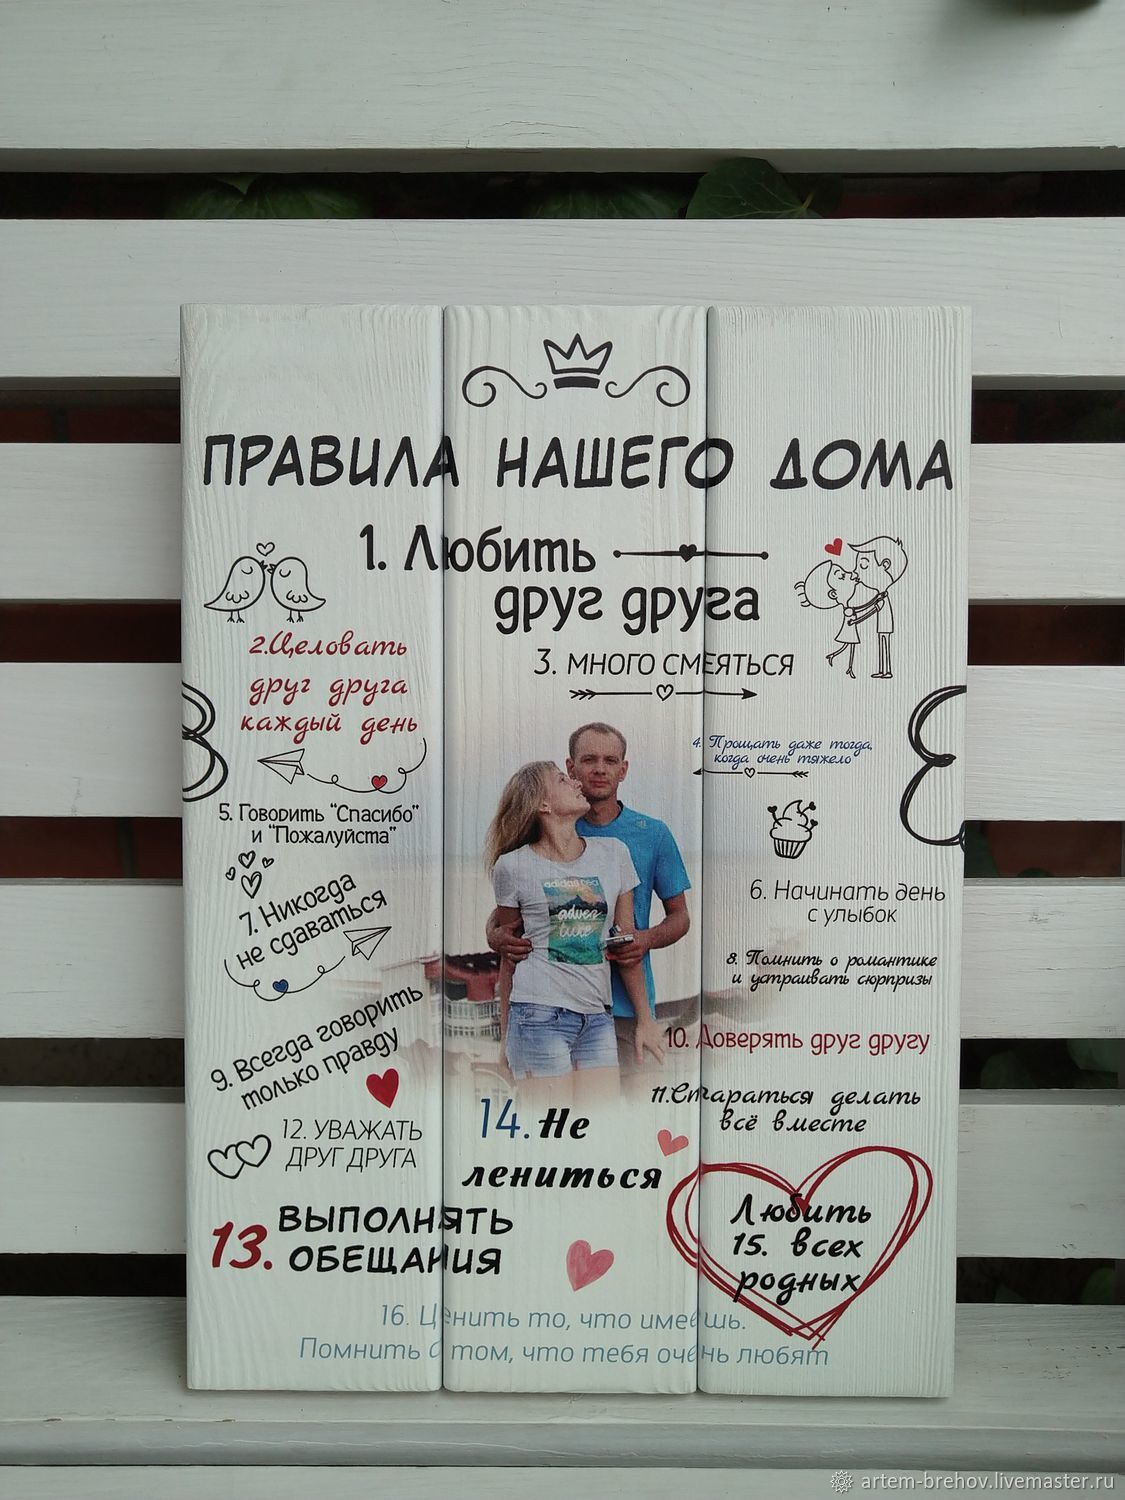 ПРАВИЛА НАШЕГО ДОМА
1. Любить
друг друга
2.Целовать
друг друга
каждый день
3. МНОГО СМЕЯТЬСЯ
4. Прощать даже тогда,
когда очень тяжело
5. Говорить "Спасибо"
и "Пожалуйста"
6. Начинать день
с улыбок
7. Никогда
не сдаваться
8. Помнить о романтике
и устраивать сюрпризы
9. Всегда говорить
только правду
10. Доверять друг другу
11.Стараться делать
всё вместе
12. УВАЖАТЬ
ДРУГ ДРУГА
13. ВЫПОЛНЯТЬ
ОБЕЩАНИЯ
14. Не
лениться
Любить
15. всех
родных
16. Ценить то, что имеешь.
Помнить о том, что тебя очень любят
adidas neo
artem-brehov.livemaster.ru